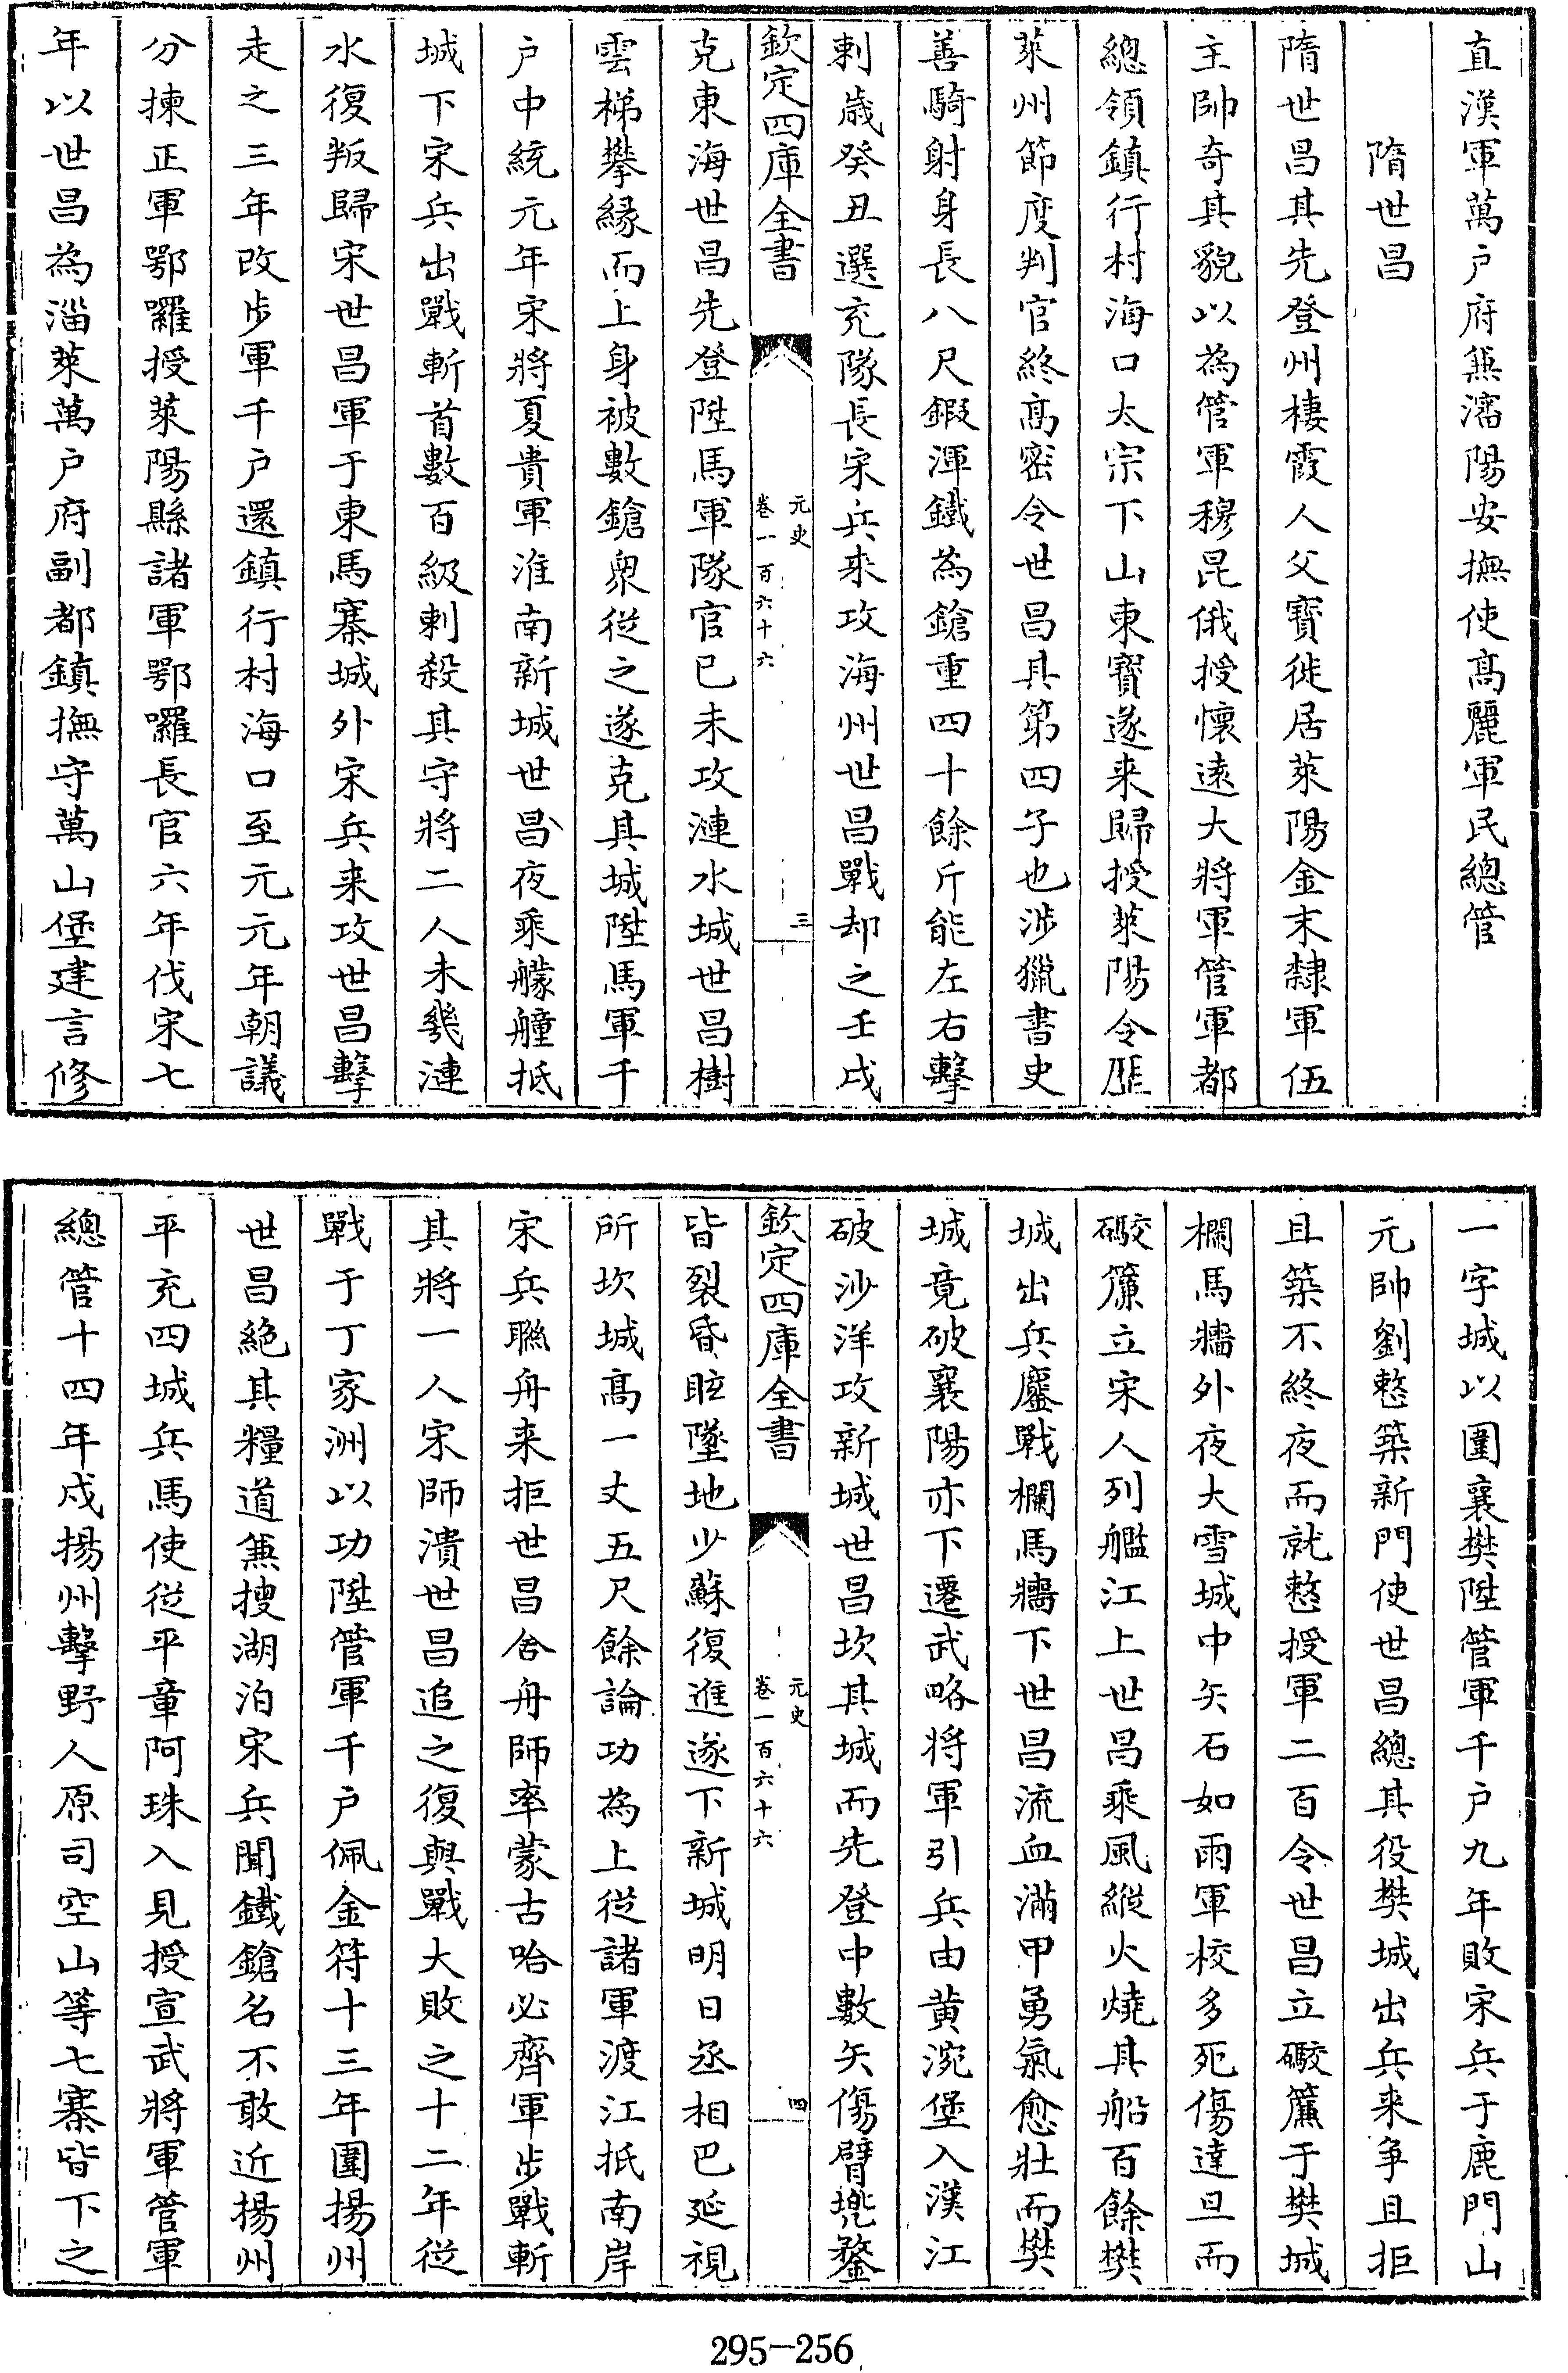 直漢軍萬户府兼瀋陽安撫使髙麗軍民總管
隋世昌
隋世昌其先登州棲霞人父寳徙居萊陽金末隸軍伍
主帥奇其貌以為管軍穆昆俄授懷逺大將軍管軍都
總領鎮行村海口太宗下山東寳遂来歸授萊陽令歴
萊州節度判官終髙密令世昌其第四子也渉獵書史
善騎射身長八尺鍜渾鐵為鎗重四十餘斤能左右擊
刺歳癸丑選充隊長宋兵来攻海州世昌戰却之壬戌
欽定四庫全書
元史
卷一百六十六
三
克東海世昌先登陞馬軍隊官已未攻漣水城世昌樹
雲梯攀縁而上身被數鎗衆從之遂克其城陞馬軍千
户中統元年宋將夏貴軍淮南新城世昌夜乘艨艟抵
城下宋兵出戰斬首數百級刺殺其守將二人未幾漣
水復叛歸宋世昌軍于東馬寨城外宋兵来攻世昌擊
走之三年改歩軍千户還鎮行村海口至元元年朝議
分揀正軍鄂囉授萊陽縣諸軍鄂囉長官六年伐宋七
年以世昌為淄萊萬户府副都鎮撫守萬山堡建言修
一字城以圍襄樊陞管軍千户九年敗宋兵于鹿門山
元帥劉整築新門使世昌總其役樊城出兵来爭且拒
且築不終夜而就整授軍二百令世昌立礮簾于樊城
欄馬牆外夜大雪城中矢石如雨軍校多死傷達旦而
礮簾立宋人列艦江上世昌乘風縱火燒其船百餘樊
城出兵鏖戰欄馬牆下世昌流血滿甲勇氣愈壯而樊
城竟破襄陽亦下遷武略將軍引兵由黄涴堡入漢江
破沙洋攻新城世昌坎其城而先登中數矢傷臂兠鍪
欽定四庫全書
元史
卷一百六十六
四
皆裂昏眩墜地少蘇復進遂下新城明日丞相巴延視
所坎城髙一丈五尺餘論功為上從諸軍渡江抵南岸
宋兵聯舟来拒世昌舍舟師率蒙古哈必齊軍歩戰斬
其將一人宋師潰世昌追之復與戰大敗之十二年從
戰于丁家洲以功陞管軍千户佩金符十三年圍揚州
世昌絶其糧道兼搜湖泊宋兵聞鐵鎗名不敢近揚州
平充四城兵馬使從平章阿珠入見授宣武將軍管軍
總管十四年戍揚州擊野人原司空山等七寨皆下之
295-256